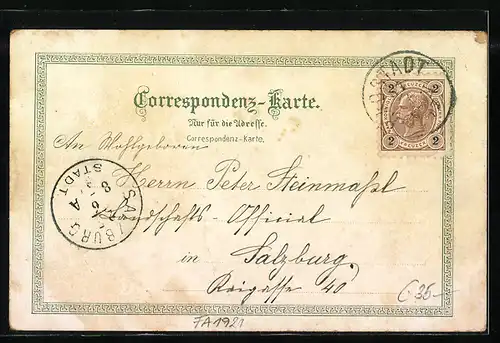 Correspondenz-Karte.
Nur für die Adresse.
Correspondenz-Karte.
An Wohlgeboren
Herrn Peter Steinmaßl
Landschafts-Official
in Salzburg.
Kaigasse 40
STADT
2 2
KREUZER
2 2
SALZBURG
STADT
8
6
4
€ 35-
FA1921